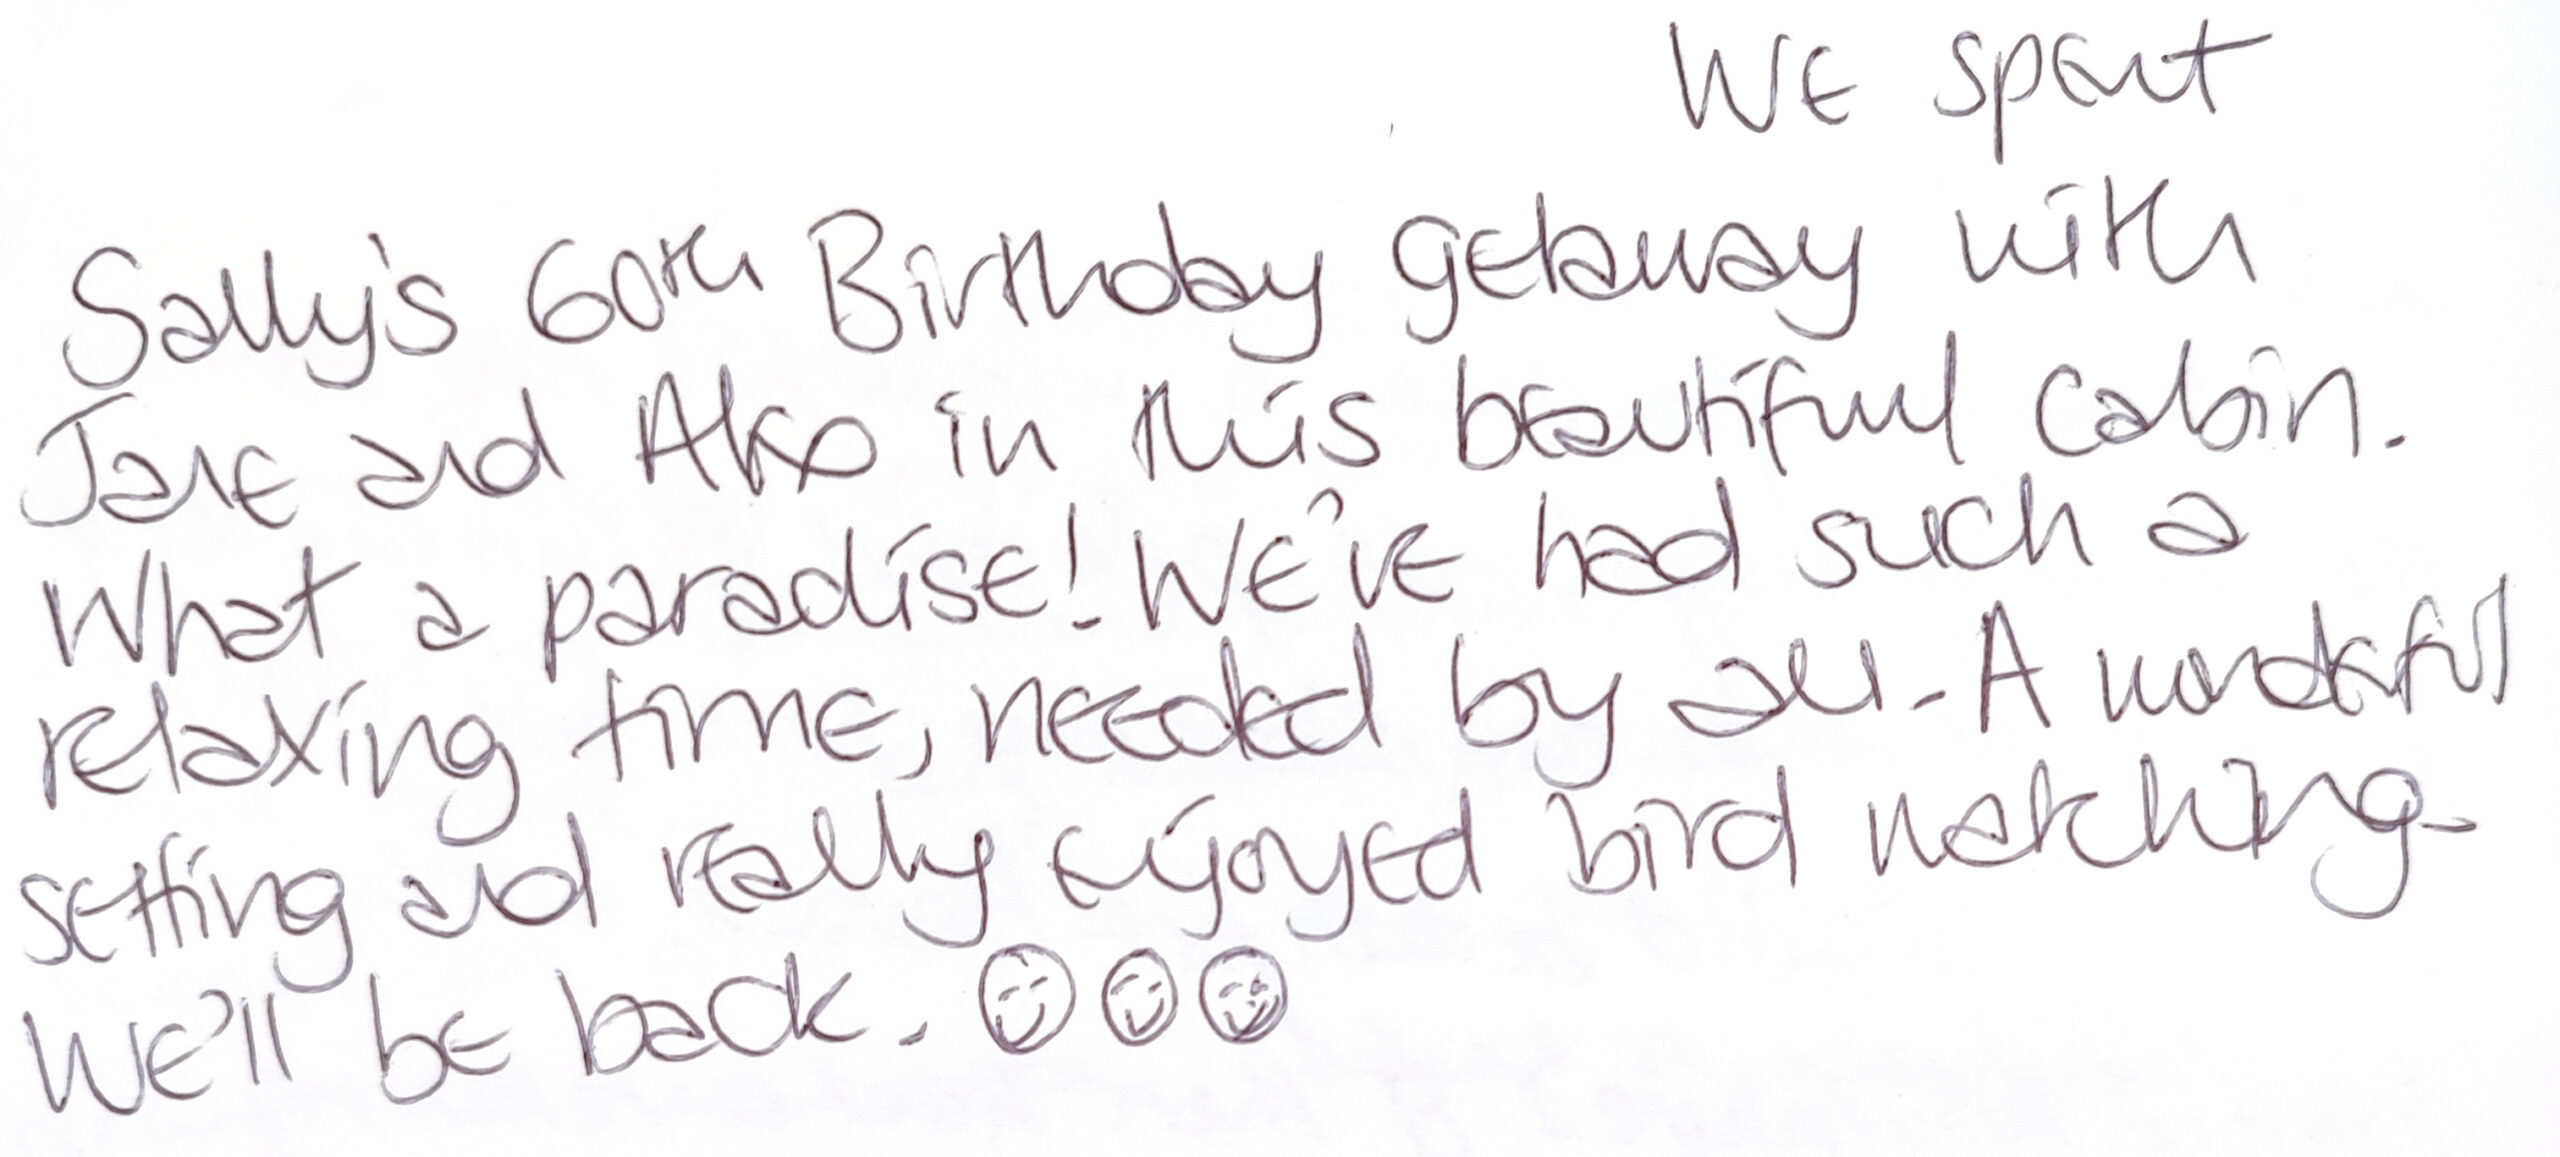 We spent
Sally's 60th Birthday getaway with
Jane and in this beautiful cabin.
What a paradise! We've had such a
relaxing time, needed by all. A wonderful
setting and really enjoyed bird watching.
We'll be back. ☺☺☺